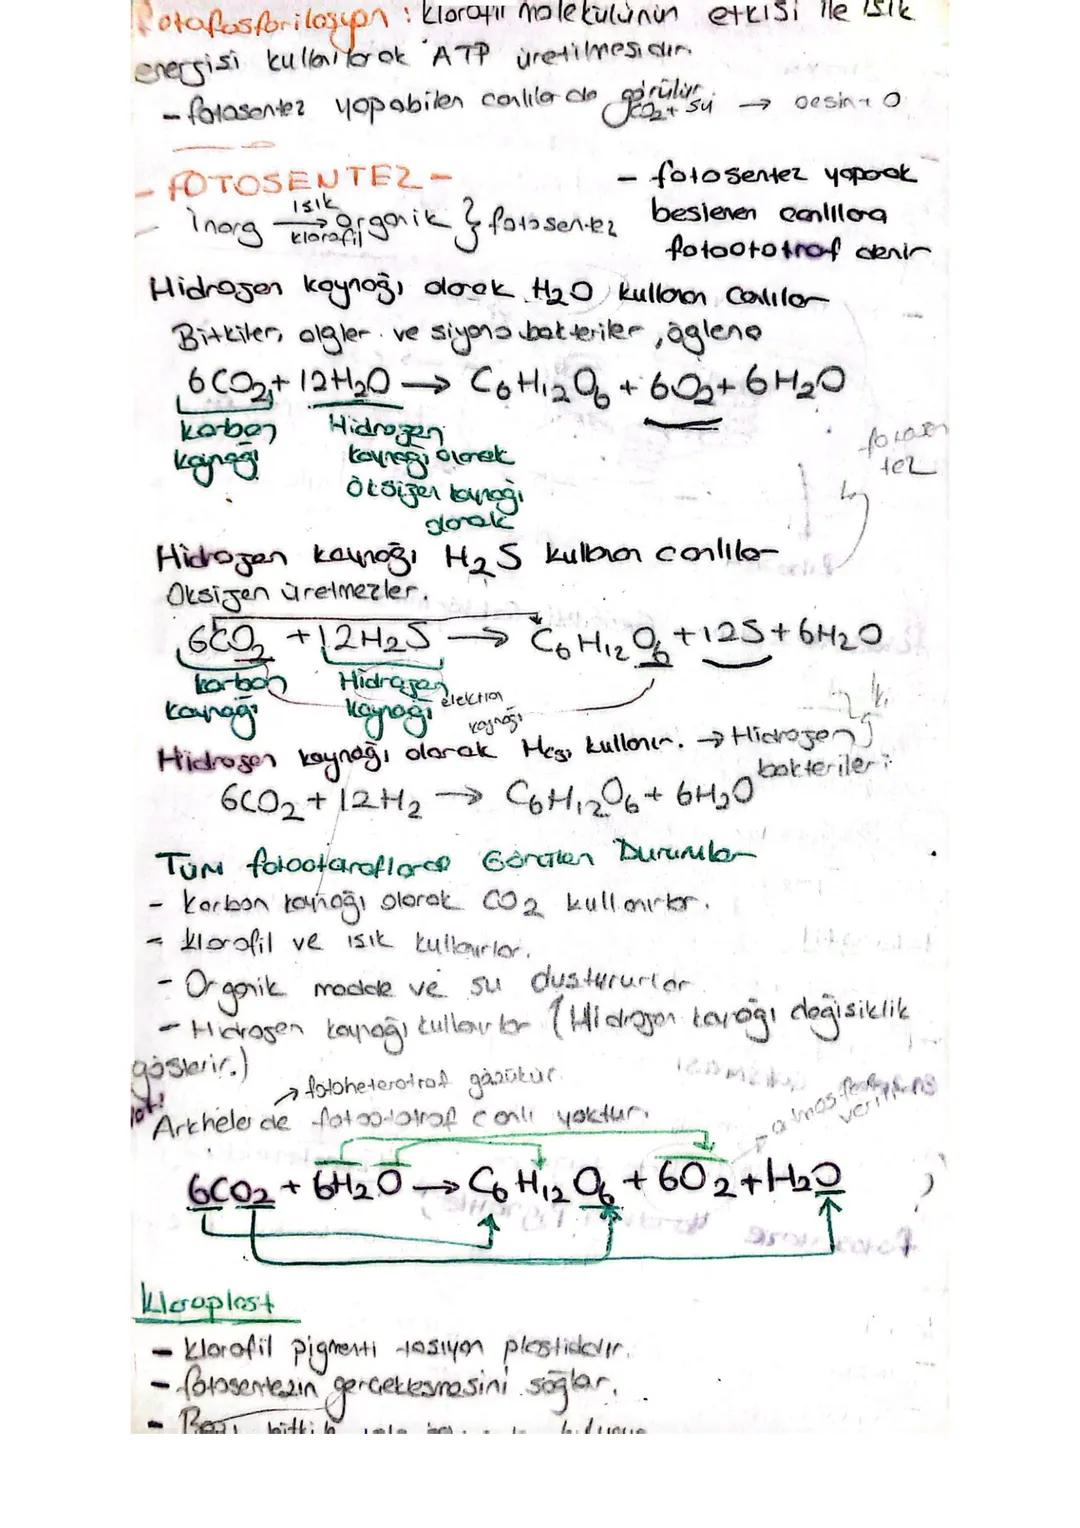 Fotofosforilasyon : klorofil molekülünün etkisi ile ışık
energisi kullanılarak ATP üretilmesidir.
- fotosentez yapabilen canlılarda görülür.
CO2 + su → besin + O
- FOTOSENTEZ -
- İnorg ışık → klorofil Organik } fotosentez
- fotosentez yaparak
beslenen canlılara
fotoototrof denir
Hidrojen kaynağı olarak H2O kullanan canlılar
Bitkiler, algler ve siyano bakteriler, öglena
6CO2 + 12H2O → C6H12O6 + 6O2 + 6H2O
karbon
kaynağı
Hidrojen
kaynağı olarak
Oksijen kaynağı
olarak
fotosen
tez
Hidrojen kaynağı H2S kullanan canlılar
Oksijen üretmezler.
6CO2 + 12H2S → C6H12O6 + 12S + 6H2O
karbon
kaynağı
Hidrojen
kaynağı
elektron
kaynağı
Hidrojen kaynağı olarak kullanır. → Hidrojen
bakterileri
6CO2 + 12H2 → C6H12O6 + 6H2O
Tüm fotoototroflarda Görülen Durumlar
- Karbon kaynağı olarak CO2 kullanırlar.
- klorofil ve ışık kullanırlar.
- Organik madde ve su oluştururlar
- Hidrojen kaynağı kullanırlar (Hidrojen kaynağı değişiklik
gösterir.)
→ fotoheterotrof gözükür.
Not!
Arkhelerde fotoototrof canlı yoktur.
→ atmosfere
verilir
6CO2 + 6H2O → C6H12O6 + 6O2 + H2O
Kloroplast
- klorofil pigmenti taşıyan plastiddir.
- fotosentezin gerçekleşmesini sağlar.
- Bazı